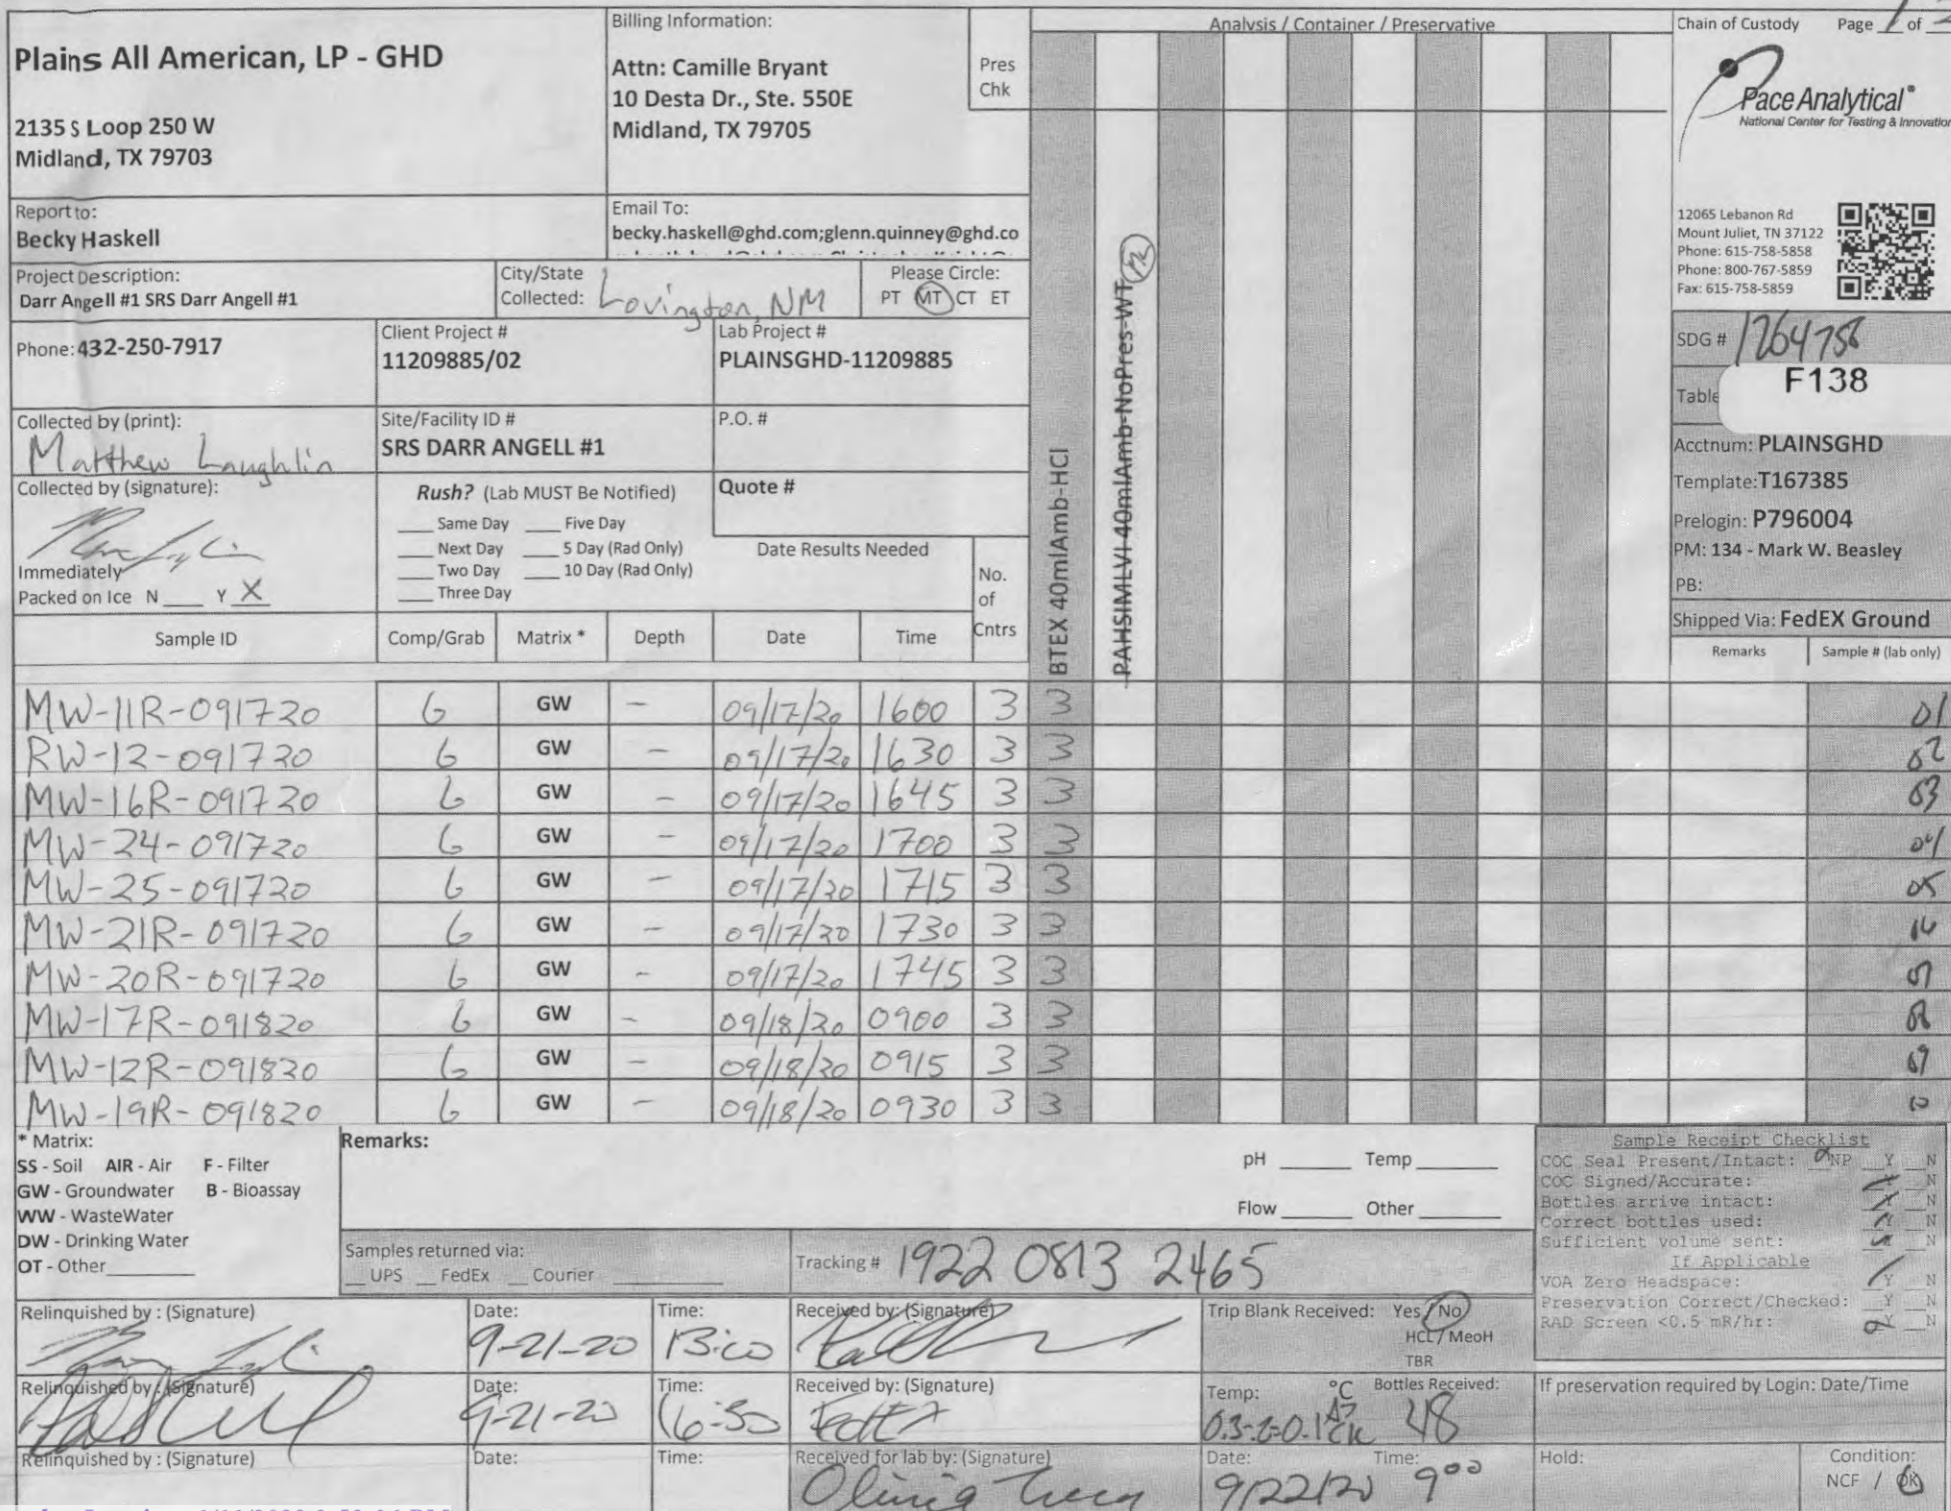 Plains All American, LP - GHD
2135 S Loop 250 W
Midland, TX 79703
Billing Information:
Attn: Camille Bryant
10 Desta Dr., Ste. 550E
Midland, TX 79705
Pres
Chk
Analysis / Container / Preservative
Chain of Custody Page 1 of
Pace Analytical®
National Center for Testing & Innovation
12065 Lebanon Rd
Mount Juliet, TN 37122
Phone: 615-758-5858
Phone: 800-767-5859
Fax: 615-758-5859
Report to:
Becky Haskell
Email To:
becky.haskell@ghd.com;glenn.quinney@ghd.co
Project Description:
Darr Angell #1 SRS Darr Angell #1
City/State
Collected: Lovington, NM
Please Circle:
PT MT CT ET
Phone: 432-250-7917
Client Project #
11209885/02
Lab Project #
PLAINSGHD-11209885
Collected by (print):
Matthew Laughlin
Site/Facility ID #
SRS DARR ANGELL #1
P.O. #
Collected by (signature):
Rush? (Lab MUST Be Notified)
___ Same Day ___ Five Day
___ Next Day ___ 5 Day (Rad Only)
___ Two Day ___ 10 Day (Rad Only)
___ Three Day
Quote #
Date Results Needed
Immediately
Packed on Ice N ___ Y X
No.
of
Cntrs
BTEX 40mlAmb-HCl
PAHSIMLVI 40mlAmb-NoPres-WT
SDG # 1264758
Table
F138
Acctnum: PLAINSGHD
Template: T167385
Prelogin: P796004
PM: 134 - Mark W. Beasley
PB:
Shipped Via: FedEX Ground
Sample ID Comp/Grab Matrix * Depth Date Time Remarks Sample # (lab only)
MW-11R-091720 G GW - 09/17/20 1600 3 3 01
RW-12-091720 G GW - 09/17/20 1630 3 3 02
MW-16R-091720 G GW - 09/17/20 1645 3 3 03
MW-24-091720 G GW - 09/17/20 1700 3 3 04
MW-25-091720 G GW - 09/17/20 1715 3 3 05
MW-21R-091720 G GW - 09/17/20 1730 3 3
MW-20R-091720 G GW - 09/17/20 1745 3 3 07
MW-17R-091820 G GW - 09/18/20 0900 3 3 08
MW-12R-091820 G GW - 09/18/20 0915 3 3 09
MW-19R-091820 G GW - 09/18/20 0930 3 3 10
* Matrix:
SS - Soil AIR - Air F - Filter
GW - Groundwater B - Bioassay
WW - WasteWater
DW - Drinking Water
OT - Other
Remarks:
pH ___ Temp ___
Flow ___ Other ___
Samples returned via:
__ UPS __ FedEx __ Courier
Tracking # 1922 0813 2465
Sample Receipt Checklist
COC Seal Present/Intact: __NP __Y __N
COC Signed/Accurate: __Y __N
Bottles arrive intact: __Y __N
Correct bottles used: __Y __N
Sufficient volume sent: __Y __N
If Applicable
VOA Zero Headspace: __Y __N
Preservation Correct/Checked: __Y __N
RAD Screen <0.5 mR/hr: __Y __N
Relinquished by : (Signature)
Date: 9-21-20
Time:
Received by: (Signature)
Trip Blank Received: Yes / No
HCL / MeoH
TBR
Relinquished by : (Signature)
Date: 9-21-20
Time:
Received by: (Signature)
FedEx
Temp: °C
Bottles Received: 48
If preservation required by Login: Date/Time
Relinquished by : (Signature)
Date:
Time:
Received for lab by: (Signature)
Date: 9/22/20
Time: 9:00
Hold:
Condition:
NCF / OK